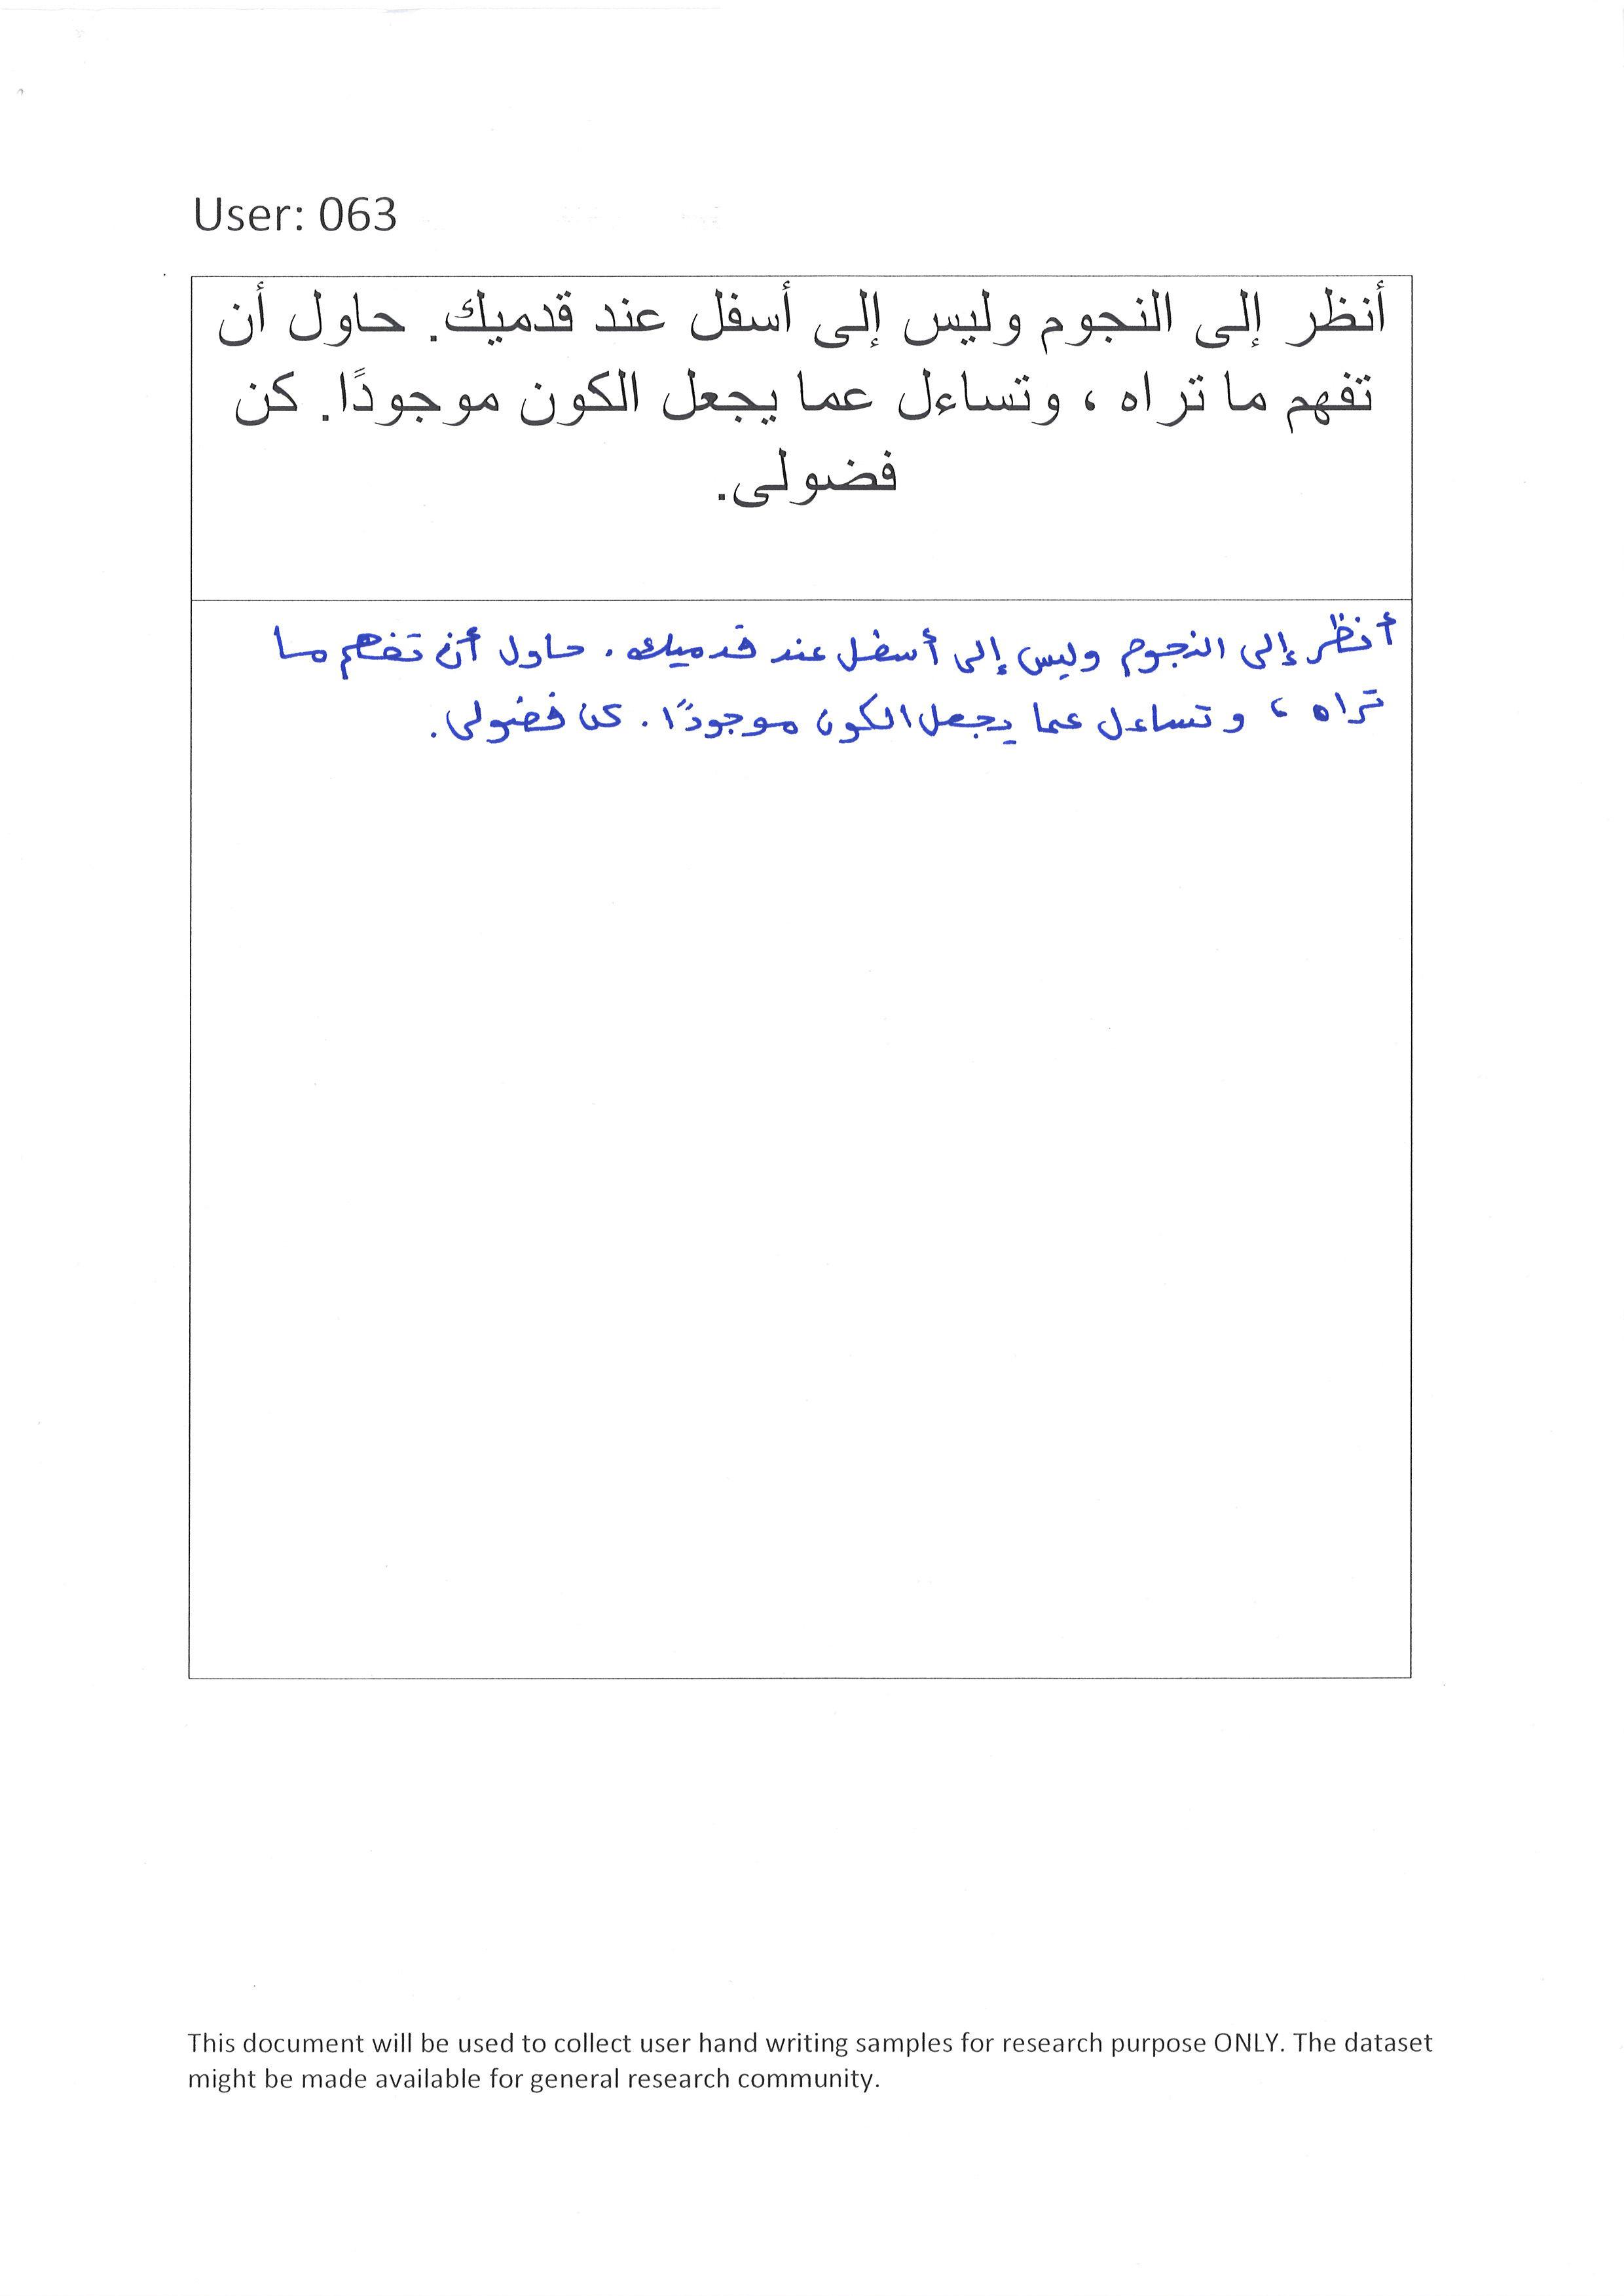 User: 063
أنظر إلى النجوم وليس إلى أسفل عند قدميك. حاول أن
تفهم ما تراه ، وتساءل عما يجعل الكون موجودًا. كن
فضولى.
أنظر إلى النجوم وليس إلى أسفل عند قدميك . حاول أن تفهم ما
تراه ، وتساءل عما يجعل الكون موجودًا . كن فضولى .
This document will be used to collect user hand writing samples for research purpose ONLY. The dataset
might be made available for general research community.